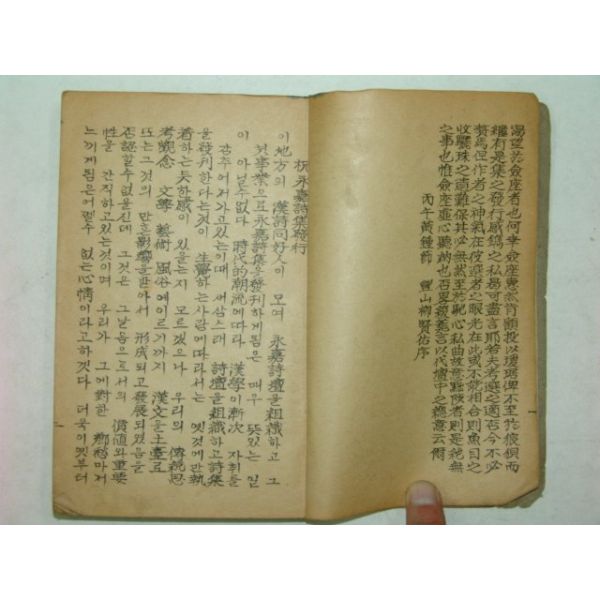 渴望於僉座者也何幸僉座夐然肯顧投以瓊琚俾不至於疲恨而
繼有是集之發行感鐫之私曷可盡言耶若夫考選之適否今不必
贅焉但作者之神氣在彼考者之眼光在此或不能相合則魚目之
收驪珠之頭難保其必無甚至於馳心私曲故意點攸者則是絶無
之事也惟僉座垂心聽納也否군玆蕪言以代壇中之德意云爾
丙午黃鍾節 豐山柳賢佑序
祝永嘉詩集發行
이地方의 漢詩同好人이 모여 永嘉詩壇을組織하고 그
첫事業으로永嘉詩集을發刊하게됨은 매우 뜻있는 일
이 아닐수없다 時代的潮流에따라 漢學이漸次 자취를
감추어져가고있는이때 새삼스레 詩壇을組織하고詩集
을發刊한다는것이 生覺하는사람에따라서는 옛것에만執
着하는듯한感이 있을는지 모르겠으나 우리의 傳統思
考觀念 文學 藝術 風俗에이르기까지 漢文을土臺로
또는그것의 많은影響을받아서 形成되고發展되였음을
否認할수없을진데 그것은 그날음으로서의 價値와重要
性을 간직하고있는것이며 우리가 그에對한 鄕愁마저
느끼게됨은어쩔수 없는心情이라고하겠다 더욱이옛부터